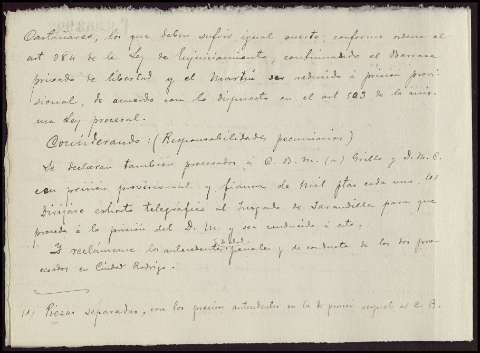 Cantuarias, los que deben sufrir igual suerte, conforme ordena el
art 384 de la Ley de Enjuiciamiento, continuando el Barrera
privado de libertad y el Martín ser reducido á prision provi-
sional, de acuerdo con lo dispuesto en el art 503 de la mis-
ma Ley procesal.
Considerando: (Responsabilidades pecuniarias)
Se declaran también procesados á C. B. M. (a) Grillo y D. M. C.
con prision provisional y fianza de mil ptas cada uno. (1)
Diríjase exhorto telegráfico al Juzgado de Jarandilla para que
proceda á la prision del D. M. y sea conducido á esta.
Y reclámense los antecedentes penales y de conducta de los dos pro-
cesados en Ciudad Rodrigo.
(1) Piezas separadas, con los precisos antecedentes en la de prision respecto al C. B.